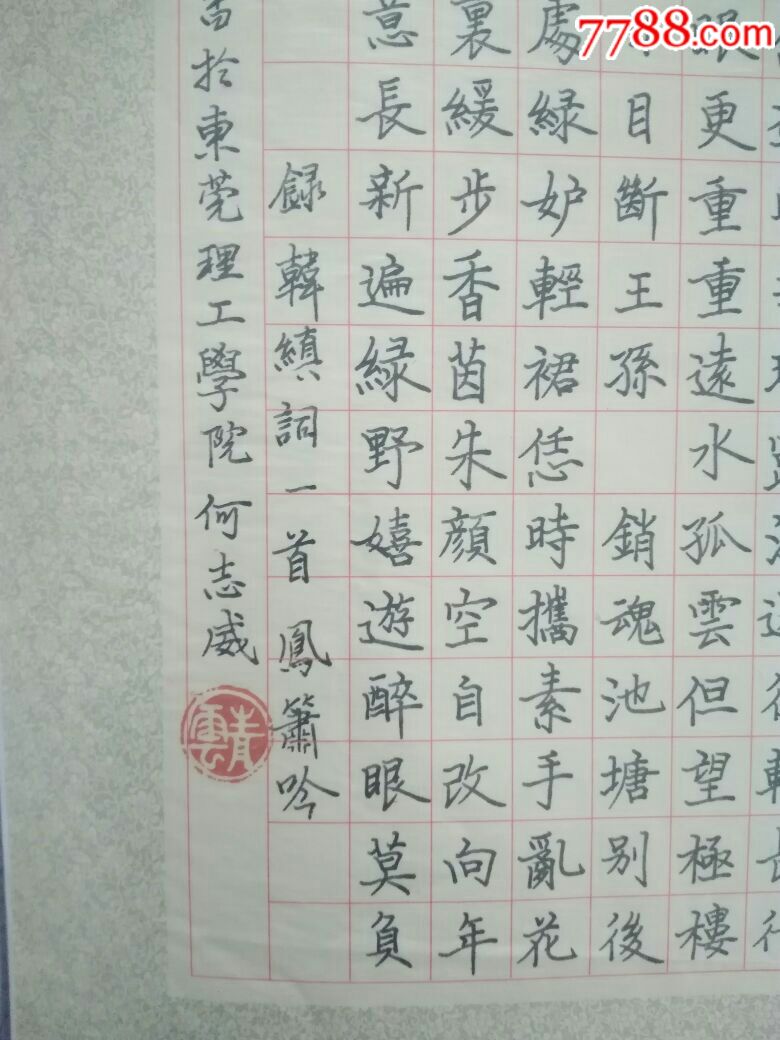 7788.com
眼更重重遠水孤雲但望極樓
目斷王孫 銷魂池塘别後
處緑妒輕裙恁時攜素手亂花
裏緩步香茵朱顔空自改向年
意長新遍緑野嬉遊醉眼莫負
録韓縝詞一首鳳簫吟
扵東莞理工學院何志威
青雲